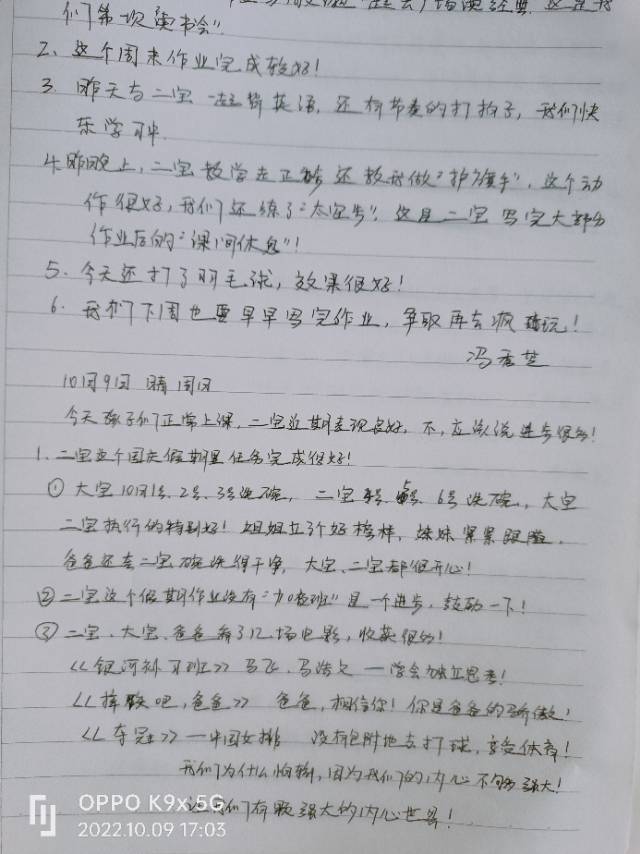 们第一次读书会".
2、这个周末作业完成较好!
3. 昨天与二宝一起背英语,还有节奏的打拍子,我们快
乐学习中.
4.昨晚上,二宝教学走正步还教我做"护旗手",这个动
作很好,我们还练了"太空步",这是二宝写完大部分
作业后的"课间休息"!
5. 今天还打了羽毛球,效果很好!
6. 我们下周也要早早写完作业,争取再去疯玩!
冯秀芝
10月9日 晴 周日
今天孩子们正常上课,二宝近期表现良好,不,应该说进步很多!
1.二宝这个国庆假期里任务完成很好!
①大宝10月1号、2号、3号洗碗,二宝4号、5号、6号洗碗,大宝
二宝执行的特别好!姐姐立了个好榜样,妹妹紧紧跟随.
爸爸还夸二宝碗洗得干净,大宝、二宝都很开心!
②二宝这个假期作业没有"加夜班"是一个进步,鼓励一下!
③二宝、大宝、爸爸看了几场电影,收获很多!
《银河补习班》马飞、马皓文一学会独立思考!
《摔跤吧,爸爸》爸爸,相信你!你是爸爸的骄傲!
《夺冠》一中国女排 没有包袱地去打球,享受体育!
我们为什么怕输,因为我们的内心不够强大!
让我们有颗强大的内心世界!
OPPO K9x 5G
2022.10.09 17:03